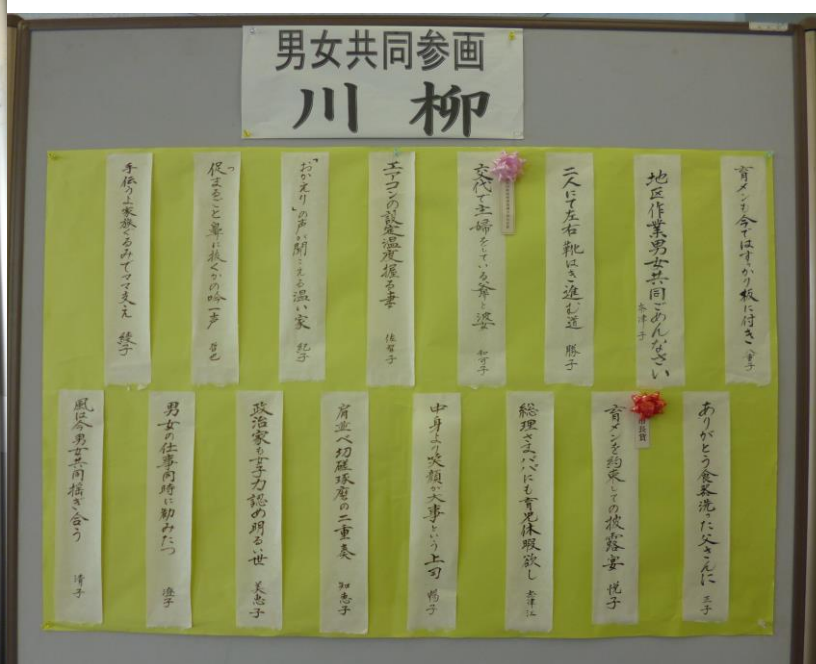 男女共同参画
川柳
育メンも今ではすっかり板に付き
地区作業男女共同ごめんなさい
二人にて左右靴はき進む道 勝子
交代で主婦をしている爺と婆 和可子
エアコンの設定温度握る妻 佐智子
「おかえり」の声が聞こえる温い家 紀子
まるごと鼻に抜くかの 一声
手伝うよ家族ぐるみでママ支え 綾子
ありがとう食器洗った父さんに 三子
市長賞
育メンを約束しての披露宴 悦子
総理さまパパにも育児休暇欲し
中身より笑顔が大事という上司
肩並べ切磋琢磨の二重奏 知志子
政治家も女子力認め明るい世 美恵子
男女の仕事同時に勤みたつ 澄子
風は今男女共同揺ぎ合う 清子